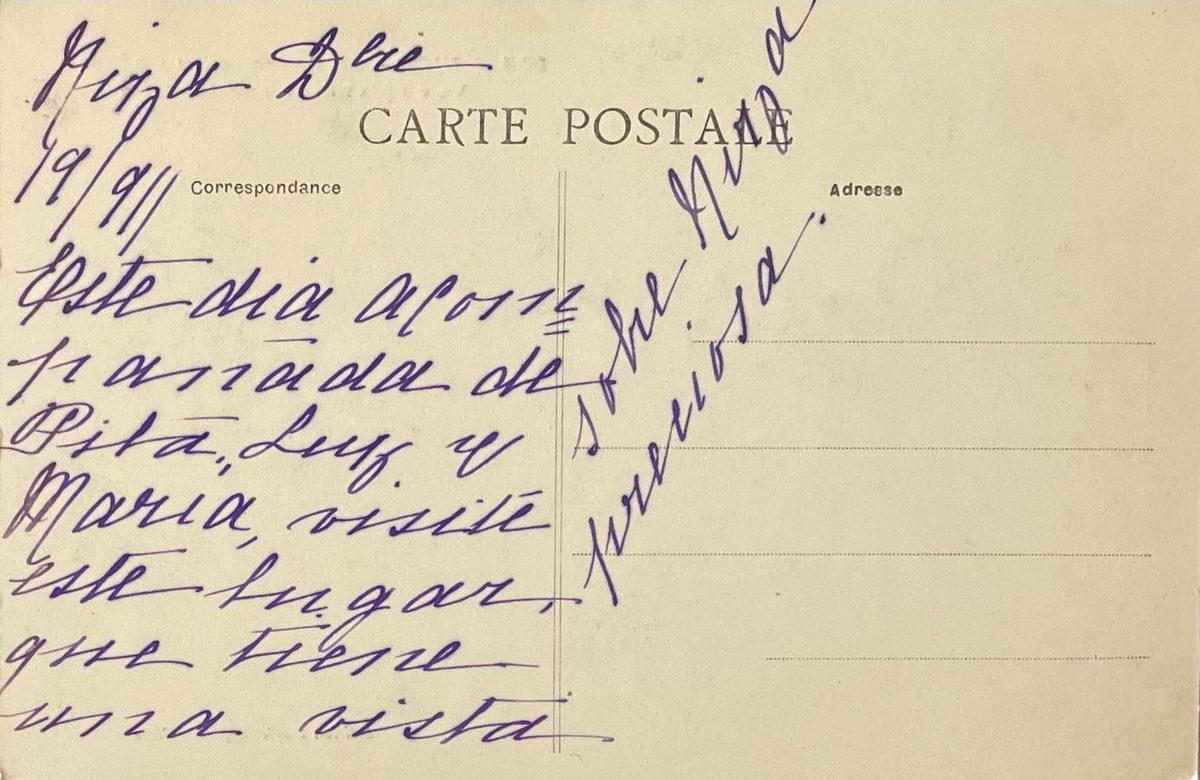 Niza Dbre
19/911
CARTE POSTALE
Correspondance
Adresse
Este dia acom=
pañada de
Pita, Luz y
Maria, visité
este lugar,
que tiene
una vista
sobre Niza
preciosa.